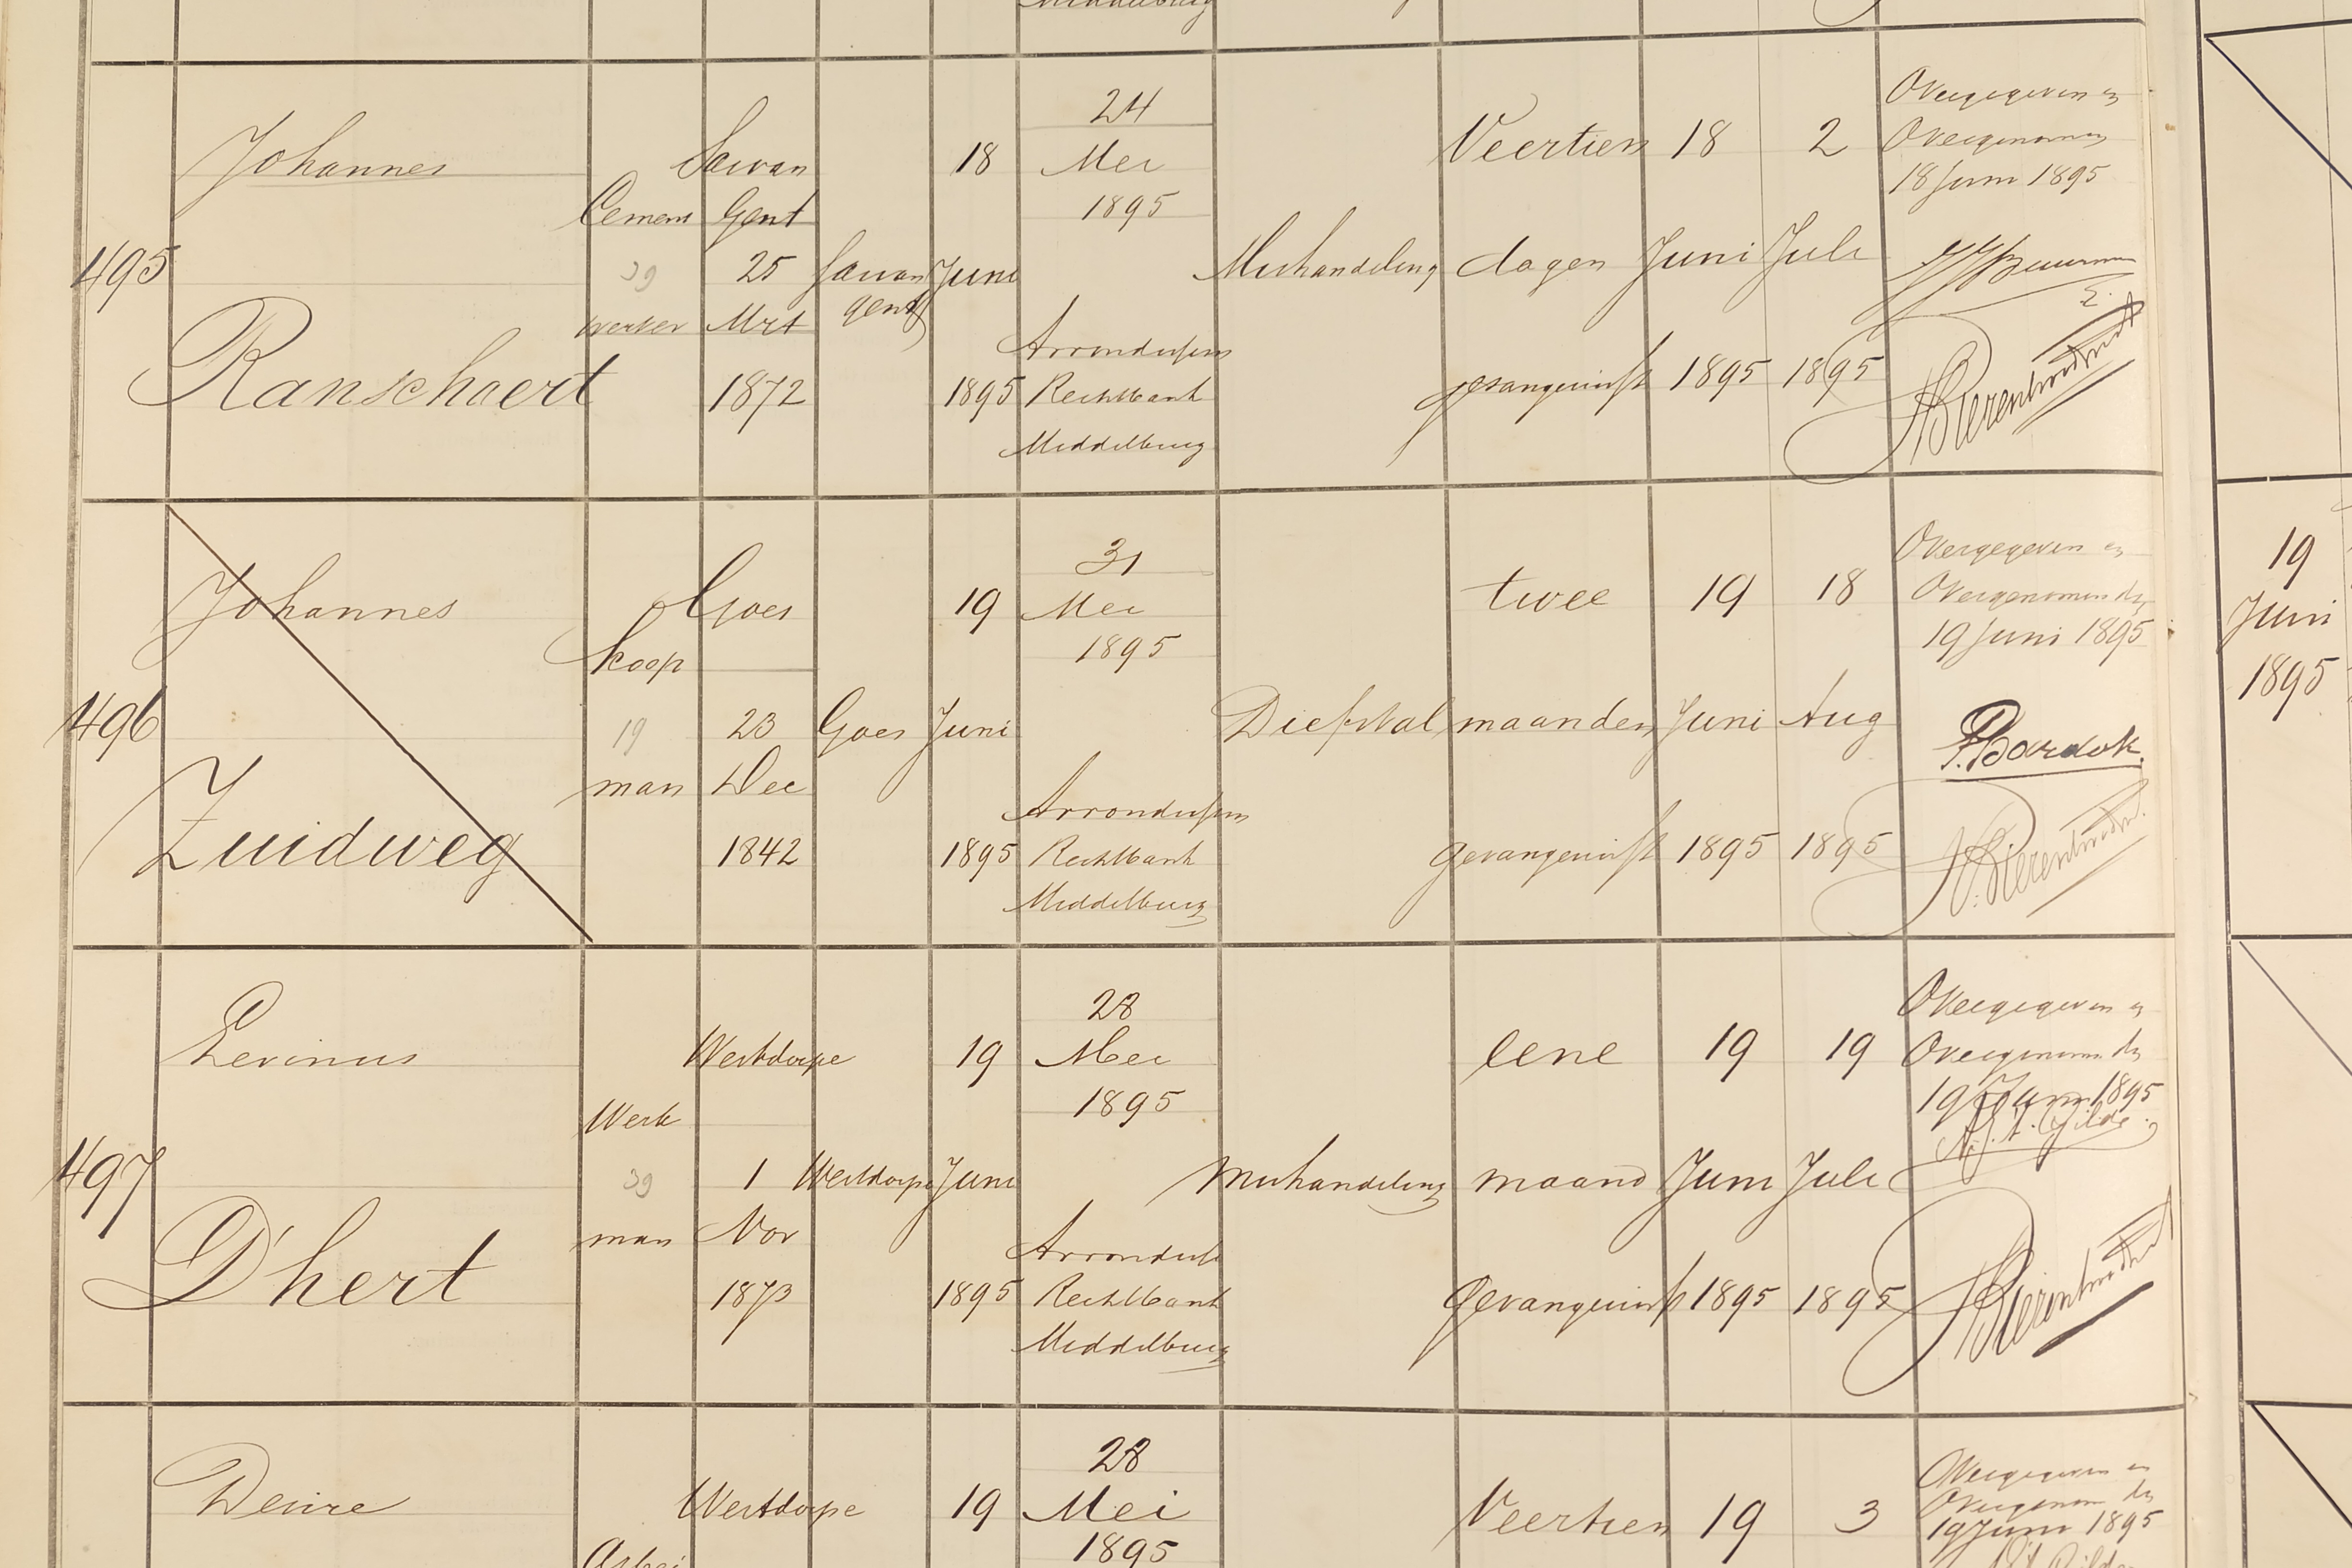 Middelburg
24
Overgegeven en
Johannes
Sas van
18
Mei
Veertien
18
2
Overgenomen
18 Juni 1895
Cement
Gent
1895
495
39
25
Sas van
Gent
Juni
Mishandeling
dagen
Juni
Juli
werker
Mrt
Arrondissem
Ranschaert
1872
1895
Rechtbank
gevangenisst
1895
1895
Middelburg
31
Overgegeven en
Johannes
Goes
19
Mei
twee
19
18
Overgenomen den
19 Juni 1895
19
Juni
1895
Koop
1895
496
19
23
Goes
Juni
Diefstal
maanden
Juni
Aug
man
Dec
Arrondissem
Zuidweg
1842
1895
Rechtbank
gevangenisst
1895
1895
Middelburg
28
Overgegeven en
Levinus
Westdorpe
19
Mei
eene
19
19
Overgenomen den
19 Juni 1895
Werk
1895
497
39
1
Westdorpe
Juni
Mishandeling
maand
Juni
Juli
man
Nov
Arrondiss
D'hert
1873
1895
Rechtbank
gevangenisst
1895
1895
Middelburg
28
Overgegeven en
Westdorpe
19
Mei
Veertien
19
3
Overgenomen den
19 Juni 1895
Arbei
1895